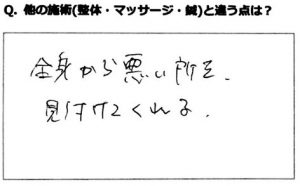 Q. 他の施術(整体・マッサージ・鍼)と違う点は？
全身から悪い所を、
見付けてくれる。